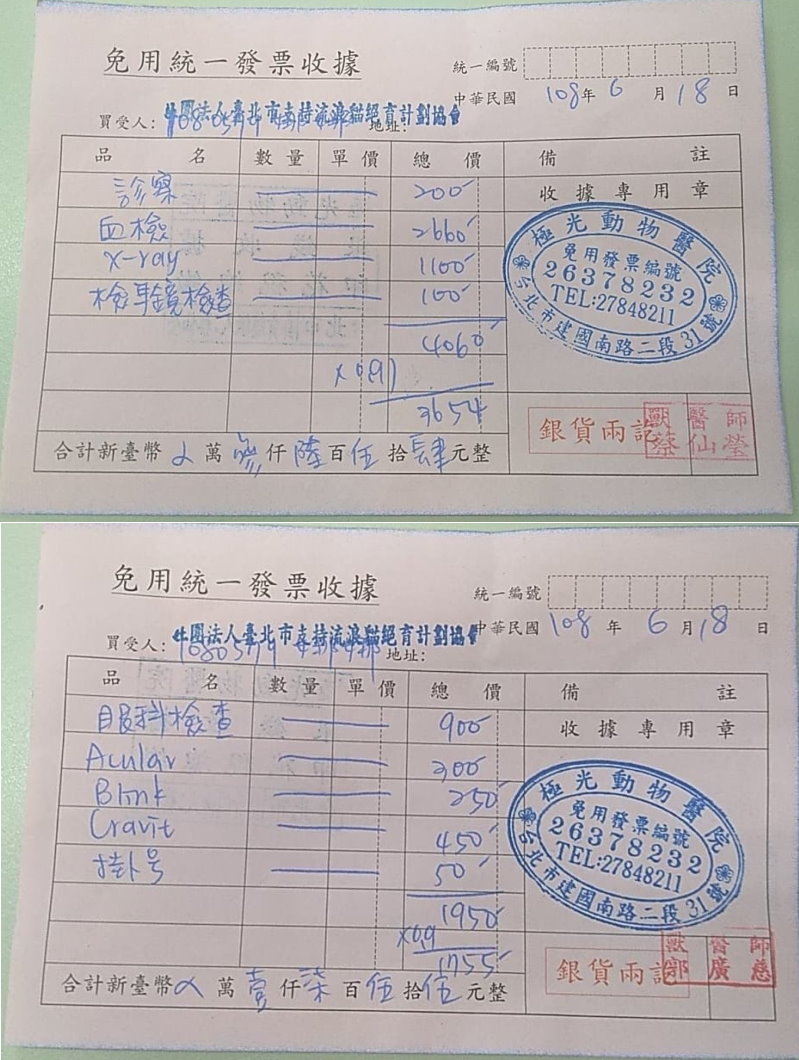 免用統一發票收據
統一編號
中華民國 108年 6 月 18 日
買受人: 社團法人臺北市支持流浪貓絕育計劃協會 地址:
品 名 數量 單價 總價 備 註
診察 200
收據專用章
血檢 2660
X-ray 1100
檢耳鏡檢查 100
4060
x0.9
3654
極光動物醫院
免用發票編號
26378232
TEL:27848211
台北市建國南路二段31號
銀貨兩訖
獸醫師
蔡仙瑩
合計新臺幣 萬 仟陸百伍拾肆元整
免用統一發票收據
統一編號
中華民國 108 年 6 月 18 日
買受人: 社團法人臺北市支持流浪貓絕育計劃協會 地址:
品 名 數量 單價 總價 備 註
眼科檢查 900
收據專用章
Acular 300
Blink 250
Cravit 450
掛号 50
1950
x0.9
1755
極光動物醫院
免用發票編號
26378232
TEL:27848211
台北市建國南路二段31號
銀貨兩訖
獸醫師
郭廣慈
合計新臺幣 萬壹仟柒百伍拾伍元整